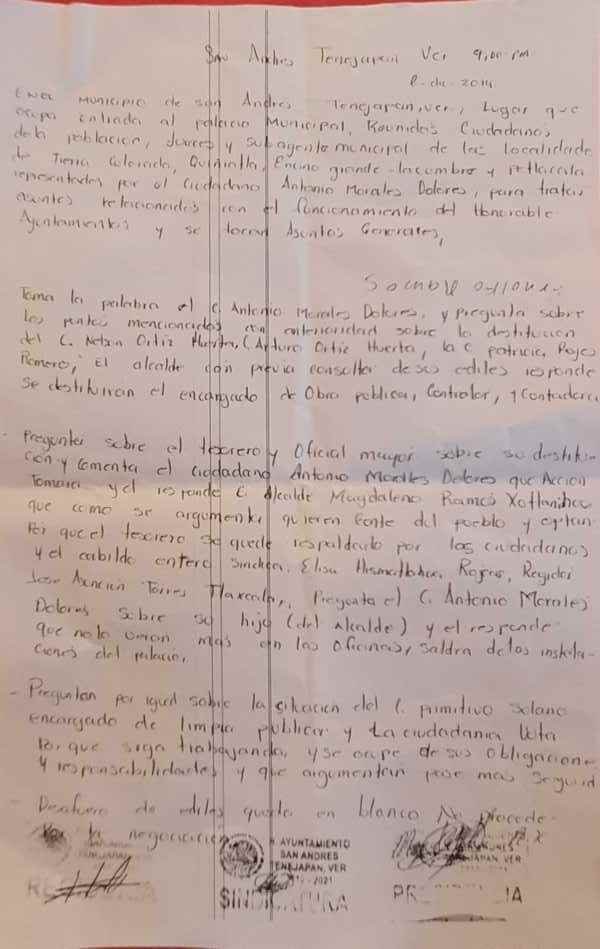 San Andres Tenejapan Ver 9,00 pm
dic. 2019
En el municipio de san Andres Tenejapan, ver, Lugar que
ocupa entrada al palacio Municipal, Reunidos Ciudadanos
de la población, Jueces y subagente municipal de las localidade
de Tierra Colorada, Encino grande - la cumbre y
representados por el Ciudadano Antonio Morales Dolores, para tratar
asuntos relacionados con el funcionamiento del Honorable
Ayuntamiento y se Asuntos Generales,
Toma la palabra el C. Antonio Morales Dolores, y pregunta sobre
los puntos mencionados con anterioridad sobre la destitucion
del C. Nelson Ortiz Huerta, C Arturo Ortiz Huerta, la C. patricia Rojas
Romero, El alcalde con previa de sus ediles responde
Se destituiran el encargado de Obra publica, Contralor, y Contadora
- Preguntan sobre el tesorero y Oficial mayor sobre su destitu-
cion y comenta el ciudadano Antonio Morales Dolores que Accion
Tomara y el responde C. Alcalde Magdaleno Ramos Xotlanihua
que como se argumenta quieren gente del pueblo y optan
Por que el tesorero se quede respaldado por los ciudadanos
y el cabildo entero Sindica, Elisa Rojas, Regidor
Jose Asencion Torres Tlaxcala, Pregunta el C. Antonio Morales
Dolores sobre su hijo (del Alcalde) y el responde
que no lo veran mas en las Oficinas, saldra de las instala-
ciones del palacio,
- Preguntan por igual sobre la situacion del C. primitivo Solano
encargado de limpia publica y La ciudadania Vota
Por que siga trabajando, y se ocupe de sus Obligacione
y responsabilidades y que argumentan pase mas seguid
- Desafuero de ediles queda en blanco No procede
la negociacion
H. AYUNTAMIENTO
SAN ANDRES
TENEJAPAN, VER
- 2021
SINDICATURA
TENEJAPAN, VER